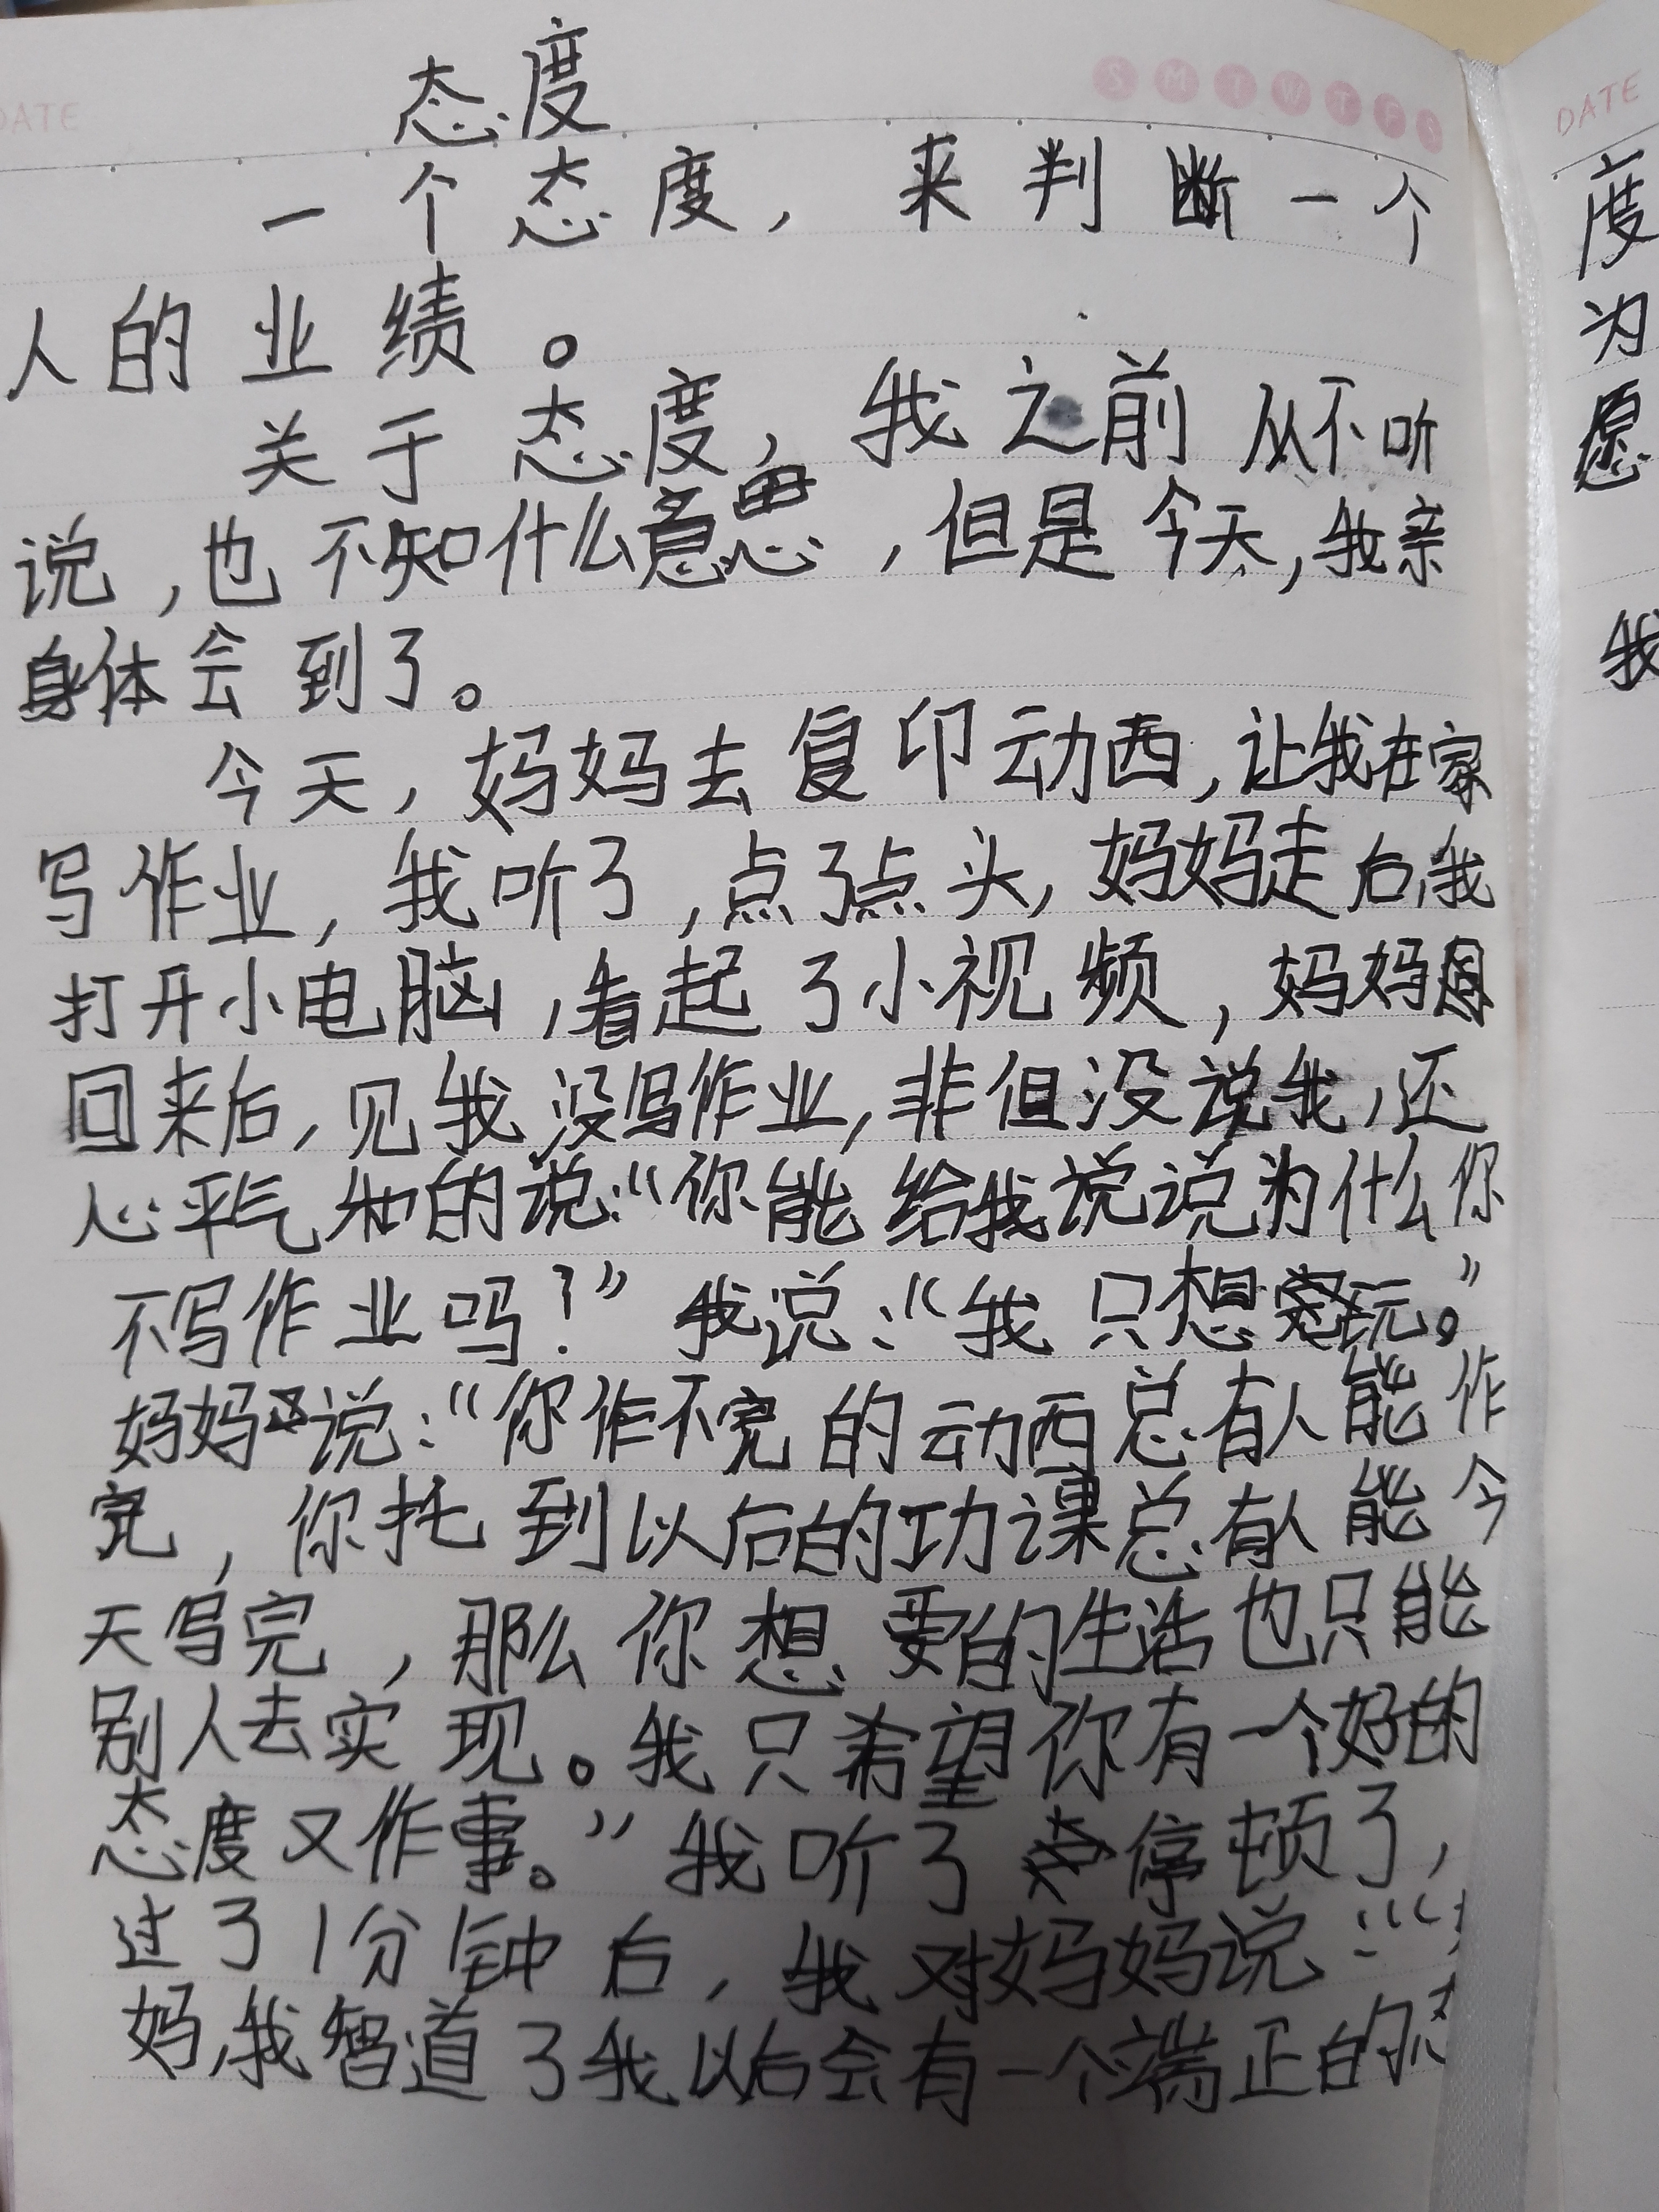 DATE
S M T W T F S
态度
一个态度，来判断一个
人的业绩。
关于态度，我之前从不听
说，也不知什么意思，但是今天，我亲
身体会到了。
今天，妈妈去复印动西，让我在家
写作业，我听了，点了点头，妈妈走后，我
打开小电脑，看起了小视频，妈妈
回来后，见我没写作业，非但没说我，还
心平气和的说：“你能给我说说为什么你
不写作业吗？”我说：“我只想玩。”
妈妈又说：“你作不完的动西总有人能作
完，你托到以后的功课总有人能今
天写完，那么你想要的生活也只能
别人去实现。我只希望你有一个好的
态度又作事。”我听了停顿了，
过了1分钟后，我对妈妈说：“
妈，我智道了我以后会有一个端正的态
DATE
度
为
愿
我